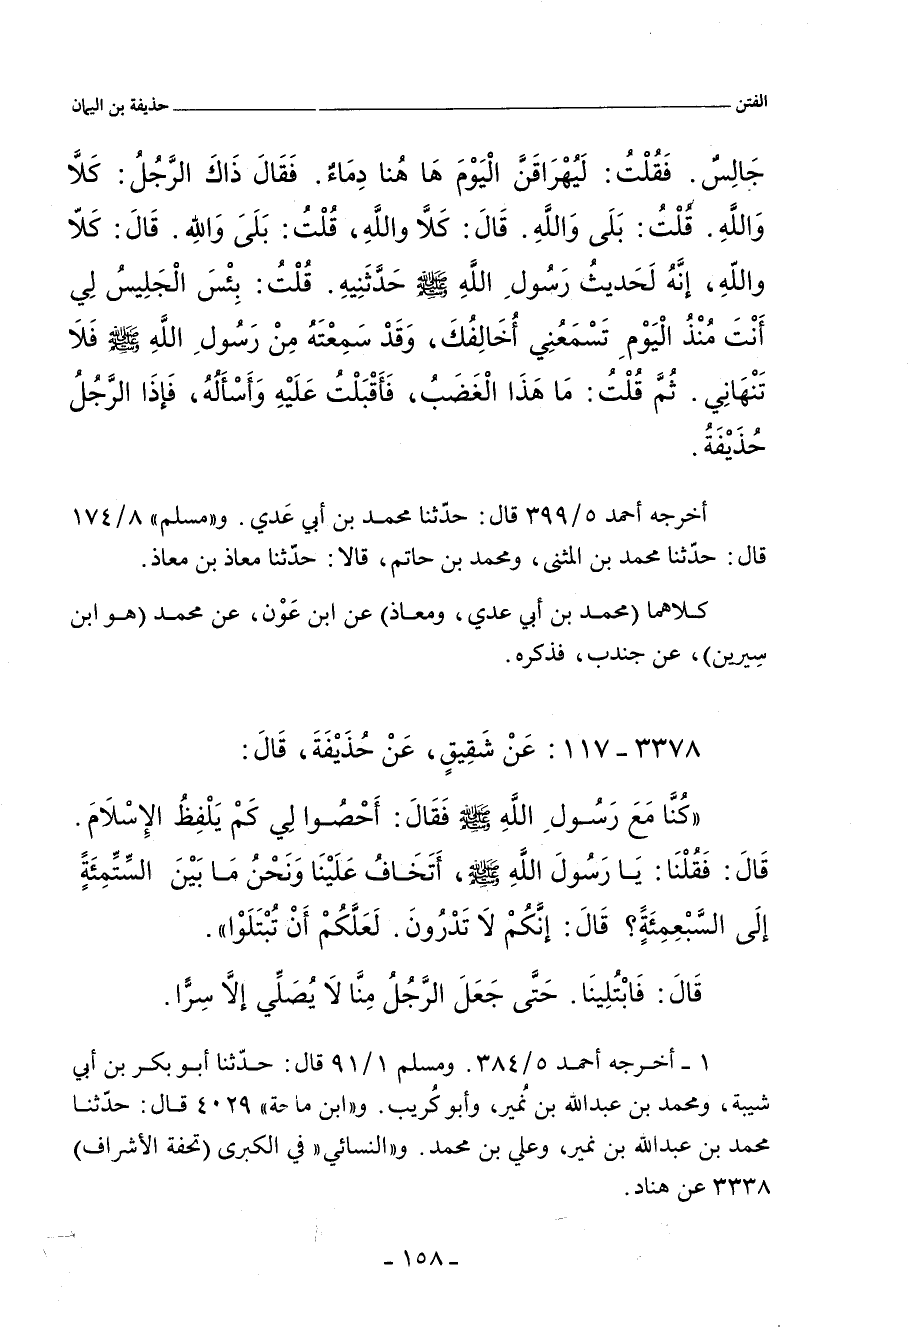 الفتن ــــــــــــــــــــــــــــــــــــــــ حذيفة بن اليمان
جَالِسٌ. فَقُلْتُ: لَيُهْرَاقَنَّ الْيَوْمَ هَا هُنا دِمَاءٌ. فَقَالَ ذَاكَ الرَّجُلُ: كَلَّا
وَاللَّهِ. قُلْتُ: بَلَى وَاللَّهِ. قَالَ: كَلَّا واللَّهِ، قُلْتُ: بَلَىَ وَاللهِ. قَالَ: كَلاّ
واللّهِ، إنَّهُ لَحَديثُ رَسُولِ اللَّهِ ﷺ حَدَّثَنِيهِ. قُلْتُ: بِئْسَ الْجَلِيسُ لِي
أَنْتَ مُنْذُ الْيَوْمِ تَسْمَعُنِي أُخَالِفُكَ، وَقَدْ سَمِعْتَهُ مِنْ رَسُولِ اللَّهِ ﷺ فَلَا
تَنْهَانِي. ثُمَّ قُلْتُ: مَا هَذَا الْغَضَبُ، فَأَقْبَلْتُ عَلَيْهِ وَأَسْأَلُهُ، فَإذَا الرَّجُلُ
حُذَيْفَةُ.
أخرجه أحمد ٣٩٩/٥ قال: حدّثنا محمد بن أبي عَدي. و«مسلم» ١٧٤/٨
قال: حدّثنا محمد بن المثنى، ومحمد بن حاتم، قالا: حدّثنا معاذ بن معاذ.
كلاهما (محمد بن أبي عدي، ومعاذ) عن ابن عَوْن، عن محمد (هو ابن
سِيرين)، عن جندب، فذكره.
٣٣٧٨ ـ ١١٧: عَنْ شَقِيقٍ، عَنْ حُذَيْفَةَ، قَالَ:
«كُنَّا مَعَ رَسُولِ اللَّهِ ﷺ فَقَالَ: أَحْصُوا لِي كَمْ يَلْفِظُ الإِسْلَامَ.
قَالَ: فَقُلْنَا: يَا رَسُولَ اللَّهِ ﷺ، أَتَخَافُ عَلَيْنَا وَنَحْنُ مَا بَيْنَ السِّتِّمِئَةِ
إلَى السَّبْعِمِئَةِ؟ قَالَ: إنَّكُمْ لَا تَدْرُونَ. لَعَلَّكُمْ أَنْ تُبْتَلَوْا».
قَالَ: فَابْتُلِينَا. حَتَّى جَعَلَ الرَّجُلُ مِنَّا لَا يُصَلِّي إلاَّ سِرًّا.
١ ـ أخرجه أحمد ٣٨٤/٥. ومسلم ٩١/١ قال: حدّثنا أبو بكر بن أبي
شيبة، ومحمد بن عبدالله بن نُمير، وأبو كُريب. و«ابن ماجة» ٤٠٢٩ قال: حدّثنا
محمد بن عبدالله بن نمير، وعلي بن محمد. و«النسائي» في الكبرى (تحفة الأشراف)
٣٣٣٨ عن هناد.
ـ ١٥٨ ـ